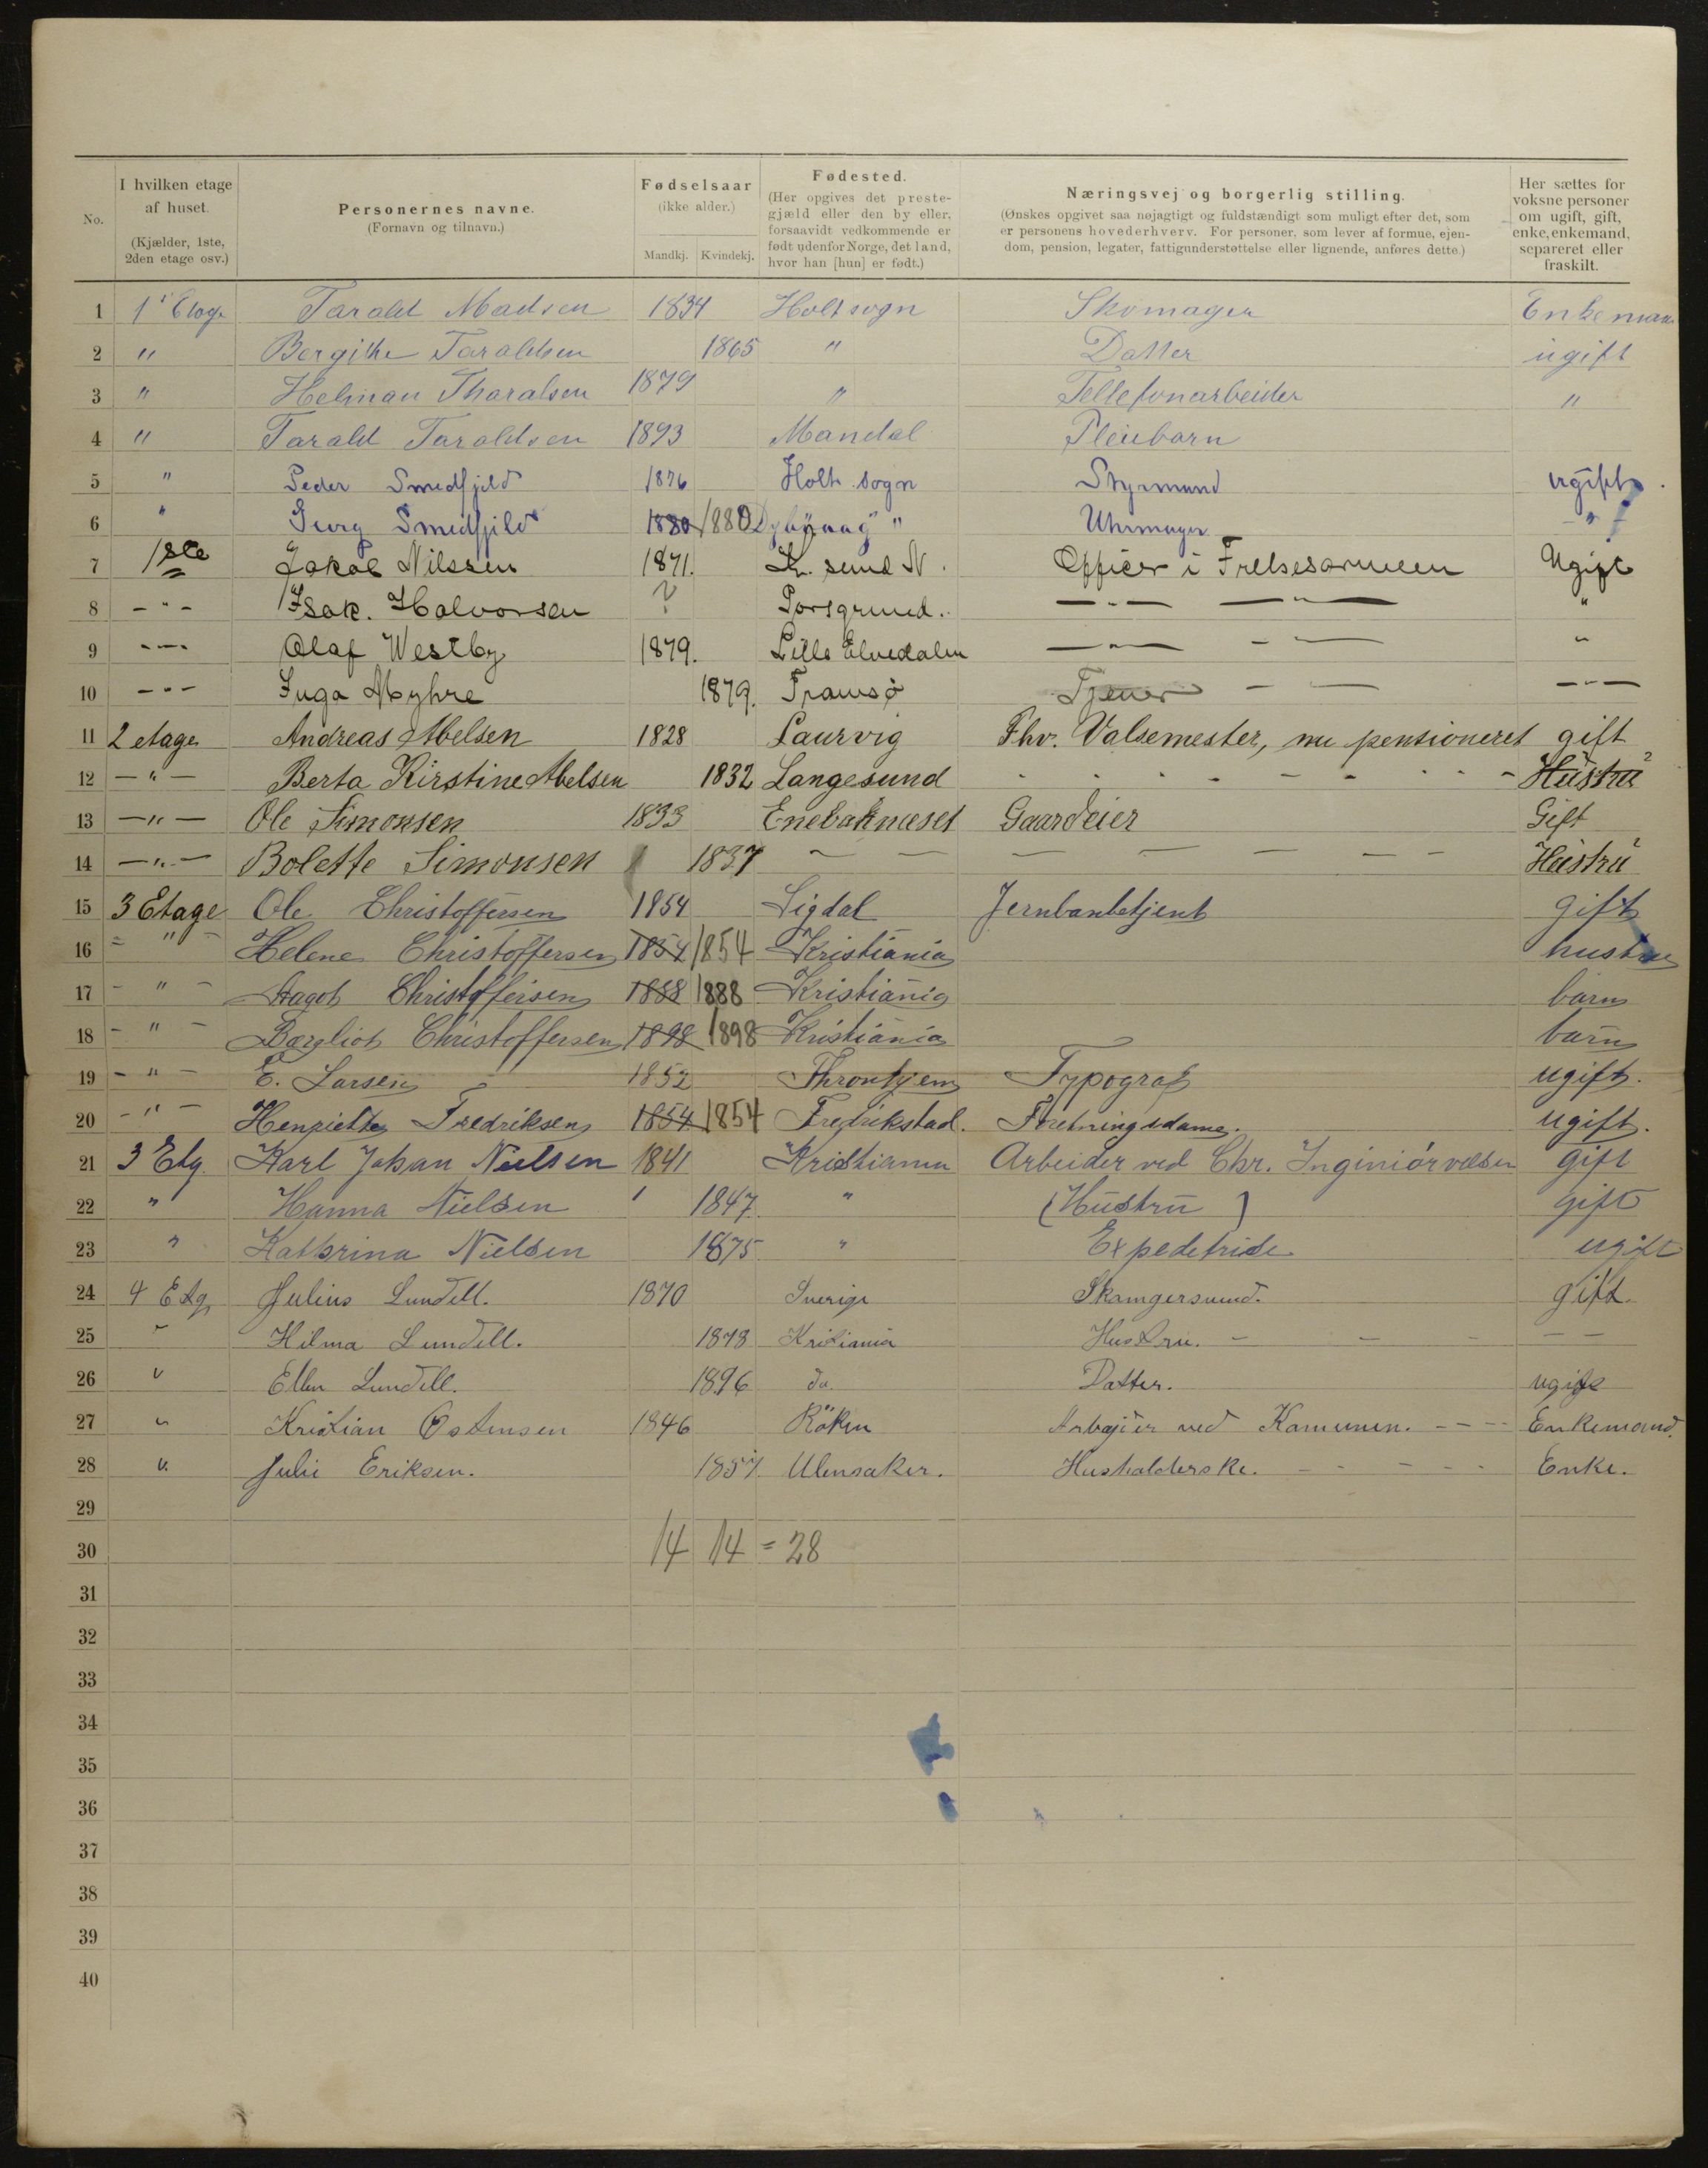 No.
I hvilken etage af huset. (Kjælder, 1ste, 2den etage osv.)
Personernes navne. (Fornavn og tilnavn.)
Fødselsaar (ikke alder.) Mandkj. Kvindekj.
Fødested. (Her opgives det prestegjæld eller den by eller, forsaavidt vedkommende er født udenfor Norge, det land, hvor han [hun] er født.)
Næringsvej og borgerlig stilling. (Ønskes opgivet saa nøjagtigt og fuldstændigt som muligt efter det, som er personens hovederhverv. For personer, som lever af formue, ejendom, pension, legater, fattigunderstøttelse eller lignende, anføres dette.)
Her sættes for voksne personer om ugift, gift, enke, enkemand, separeret eller fraskilt.
1 1ste Etage Tarald Madsen 1834 Holt sogn Skomager Enkeman
2 " Bergithe Taraldsen 1865 " Datter ugift
3 " Helman Tharalsen 1879 " Tellefonarbeider "
4 " Tarald Taraldsen 1893 Mandal Pleiebarn
5 " Peder Smedfjeld 1876 Holt sogn Styrmand ugift.
6 " Georg Smedfjeld 1880 1880 Dybvaag " Uhrmager - " -
7 1ste Jakob Nilssen 1871. Kr. sund N. Officer i Frelsesarmeen Ugift
8 - " - Isak. Halvorsen ? Porsgrund. - " - - " - "
9 - " - Olaf Westby 1879. Lille Elvedalen - " - - " - "
10 - " - Inga Myhre 1879. Tromsø Tjener - - - " -
11 2 etage Andreas Abelsen 1828 Laurvig Fhv. Valsemester, nu pensioneret gift
12 - " - Berta Kirstine Abelsen 1832 Langesund - - - - - - - - Hustru
13 - " - Ole Simonsen 1833 Enebaknæset Gaardeier Gift
14 - " - Bolette Simonsen 1837 - - - - - - - Hustru
15 3 Etage Ole Christoffersen 1854 Sigdal Jernbanbetjent gift
16 - " - Helene Christoffersen 1854 1854 Kristiania hustru
17 - " - Dagot Christoffersen 1888 1888 Kristiania barn
18 - " - Borgliot Christoffersen 1898 1898 Kristiania barn
19 - " - E. Larsen 1852 Throntjem Typograf ugift.
20 - " - Henriette Fredriksen 1854 1854 Fredrikstad. Foretningsdame. ugift.
21 3 Etg. Karl Johan Nielsen 1841 Kristiania Arbeider ved Chr. Inginiörvæsen gift
22 " Hanna Nielsen 1847 " (Hustru) gift
23 " Kathrina Nielsen 1875 " Expedetride ugift
24 4 Etg. Julius Lundell. 1870 Sverige Skomgersvend. gift.
25 " Hilma Lundell. 1873 Kristiania Hustru. - - - - -
26 " Ellen Lundell. 1896 do. Datter. ugift
27 " Kristian Ostensen 1846 Röken Arbejder ved Kamunen. - - - Enkemand.
28 ". Julie Eriksen. 1857. Ulensaker. Husholderske. - - - - - Enke.
29
30 14 14 = 28
31
32
33
34
35
36
37
38
39
40